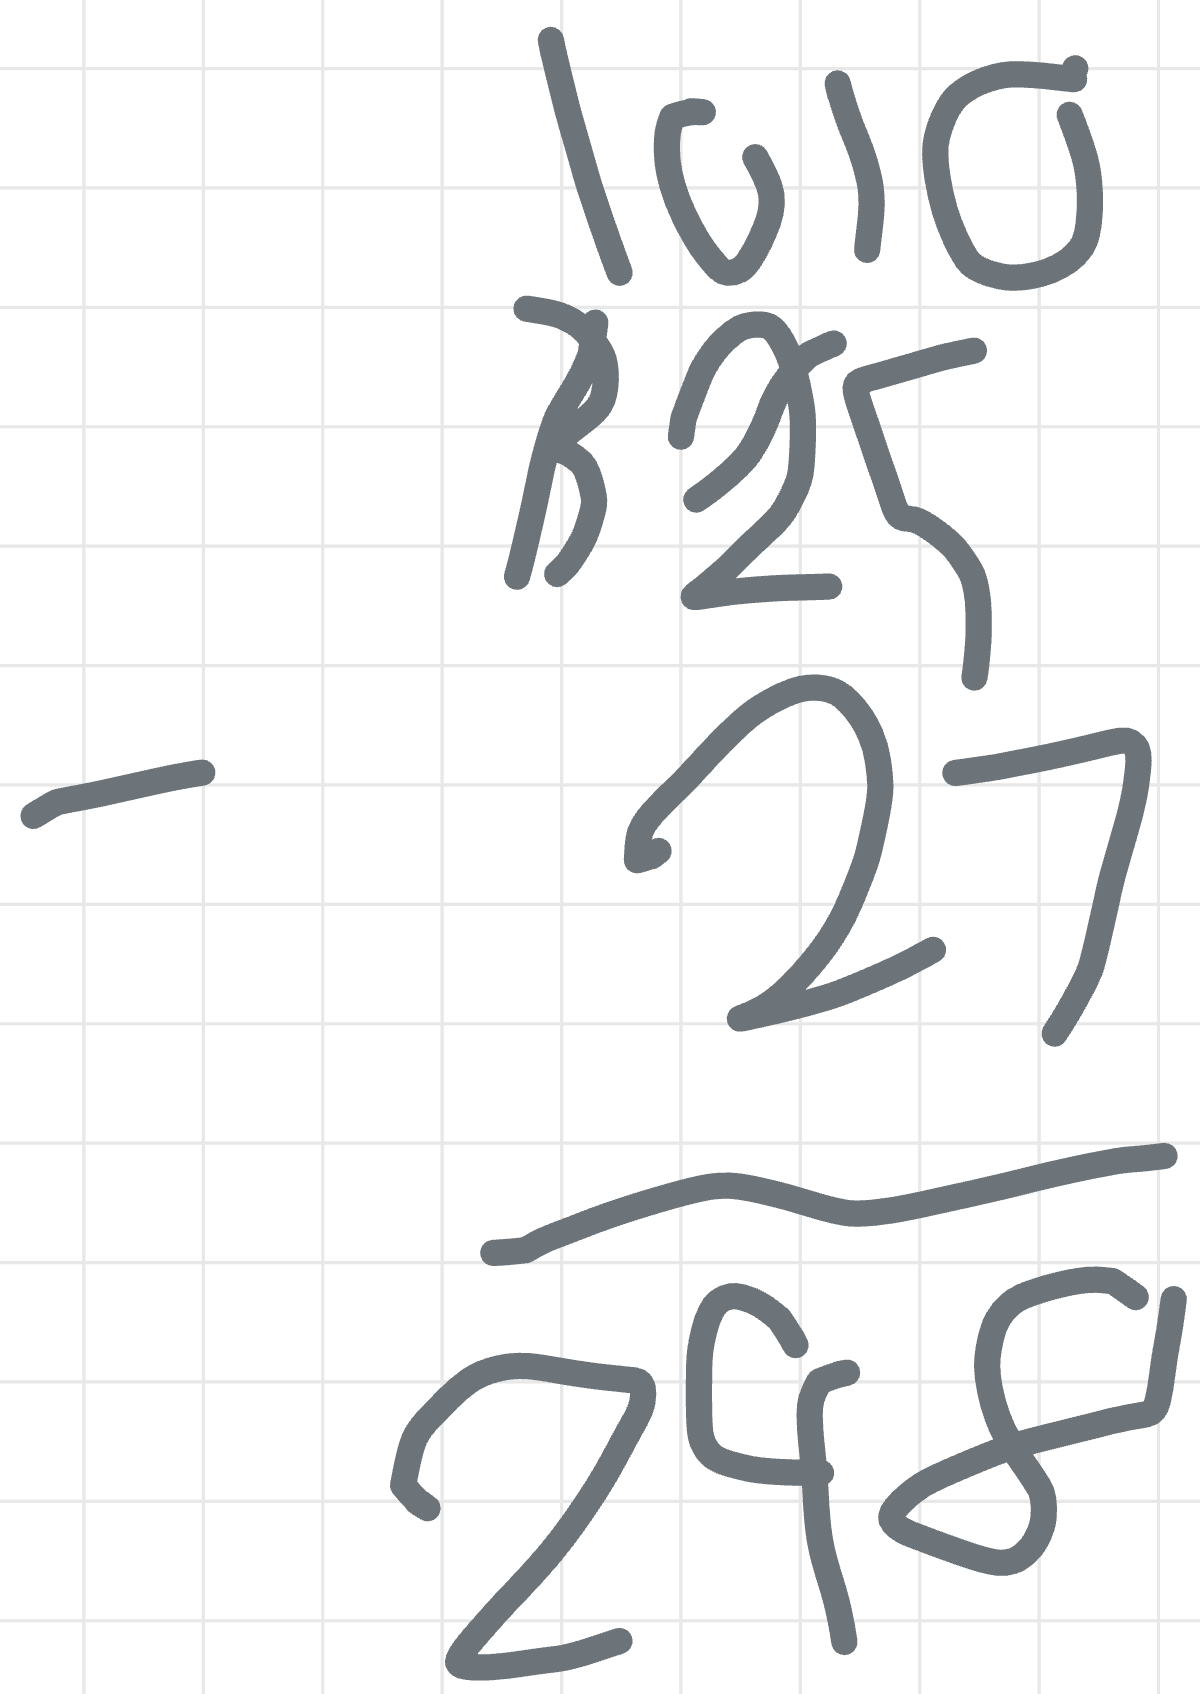 1010
325
- 27
298